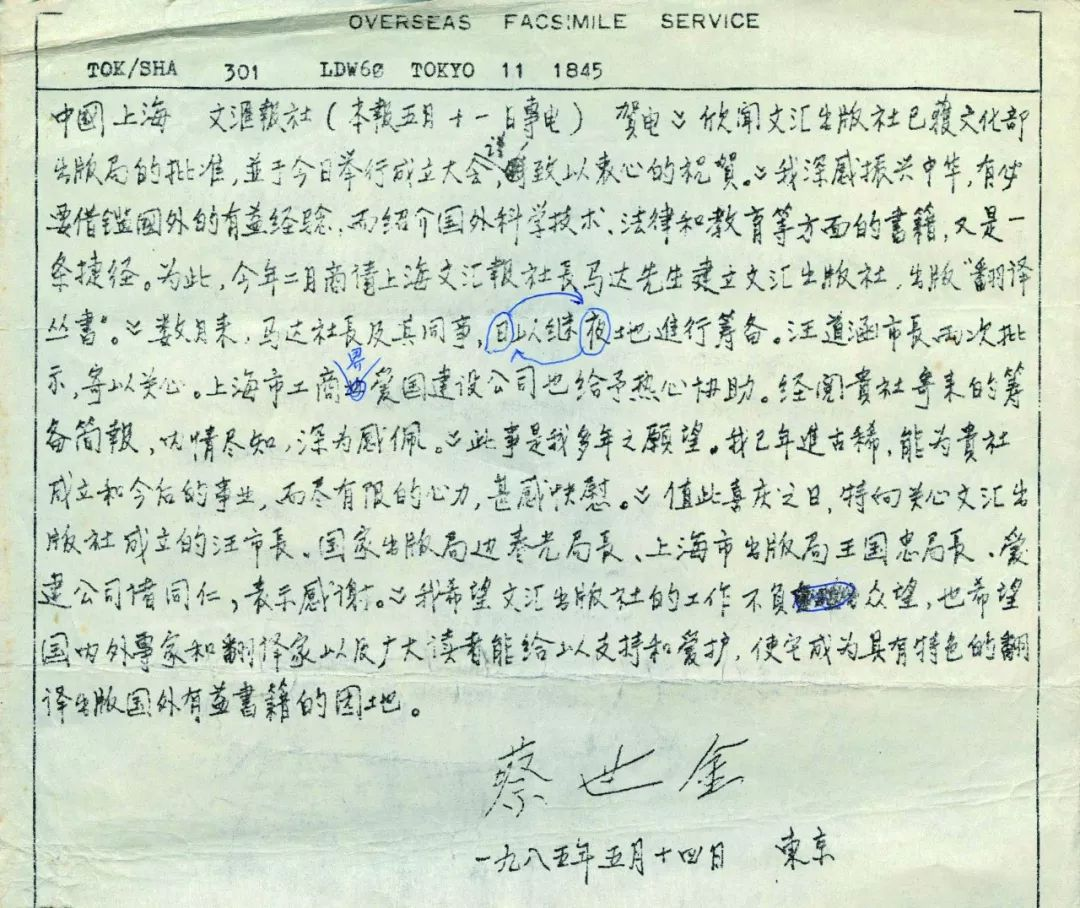 OVERSEAS FACSIMILE SERVICE
TOK/SHA 301 LDW60 TOKYO 11 1845
中國上海 文滙報社(本報五月十一日專电) 贺电 欣闻文汇出版社已獲文化部
出版局的批准,並于今日举行成立大会,谨致以衷心的祝賀。我深感振兴中华,有必
要借鑑國外的有益经验,而绍介国外科学技术、法律和教育等方面的書籍,又是一
条捷径。为此,今年二月商请上海文汇報社長马达先生建立文汇出版社,出版“翻译
丛書”。数月来,马达社長及其同事,日以继夜地進行筹备。汪道涵市長两次批
示,寄以关心。上海市工商界爱国建设公司也给予热心协助。经阅貴社寄来的筹
备简報,内情尽知,深为感佩。此事是我多年之愿望。我已年進古稀,能为貴社
成立和今后的事业,而尽有限的心力,甚感快慰。值此喜庆之日,特向关心文汇出
版社成立的汪市長、国家出版局边春光局長、上海市出版局王国忠局長、爱
建公司诸同仁,表示感谢。我希望文汇出版社的工作不負众望,也希望
国内外專家和翻译家以及广大读者能给以支持和爱护,使它成为具有特色的翻
译出版国外有益書籍的园地。
蔡世金
一九八五年五月十四日 東京